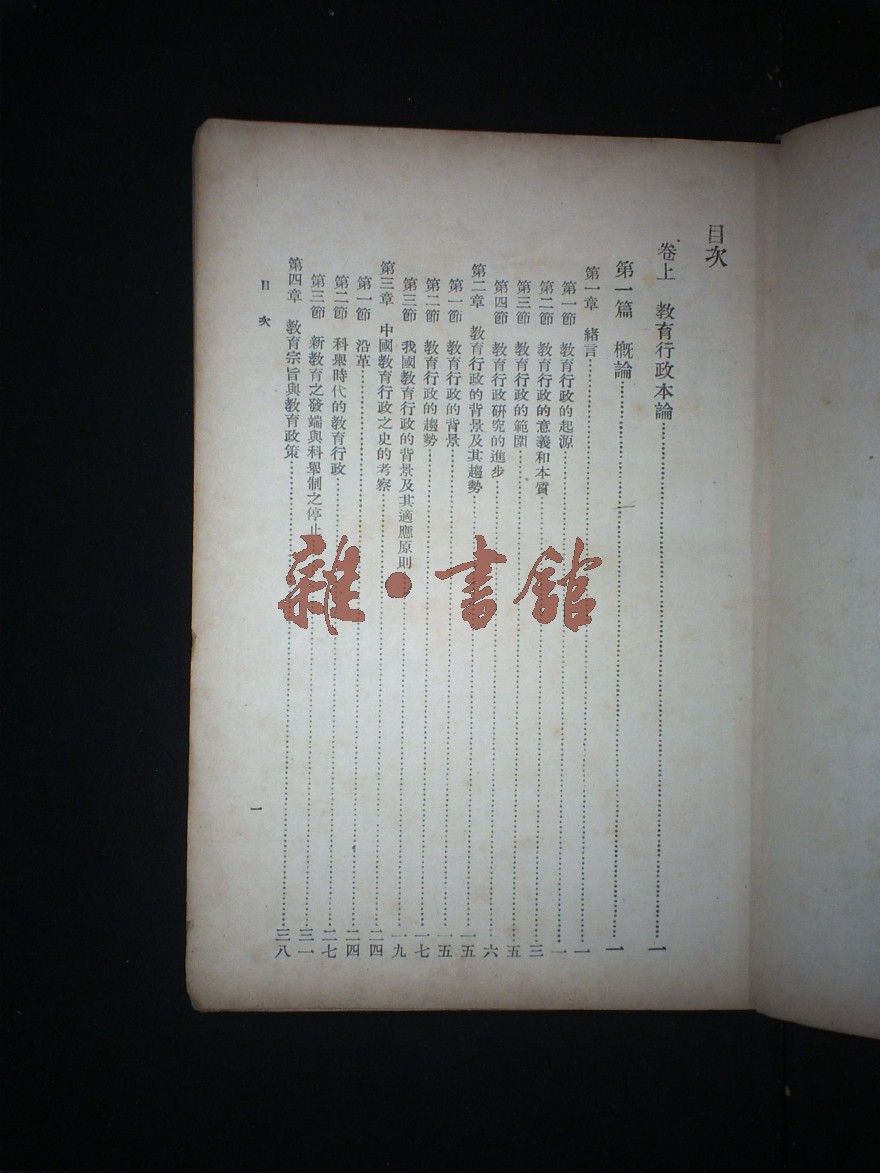 目次
卷上　教育行政本論…………一
第一篇　概論…………一
第一章　緒言…………一
第一節　教育行政的起源…………一
第二節　教育行政的意義和本質…………三
第三節　教育行政的範圍…………五
第四節　教育行政研究的進步…………六
第二章　教育行政的背景及其趨勢…………一五
第一節　教育行政的背景…………一五
第二節　教育行政的趨勢…………一七
第三節　我國教育行政的背景及其適應原則…………一九
第三章　中國教育行政之史的考察…………二四
第一節　沿革…………二四
第二節　科舉時代的教育行政…………二七
第三節　新教育之發端與科舉制之停止…………三一
第四章　教育宗旨與教育政策…………三八
目次
一
雜·書館